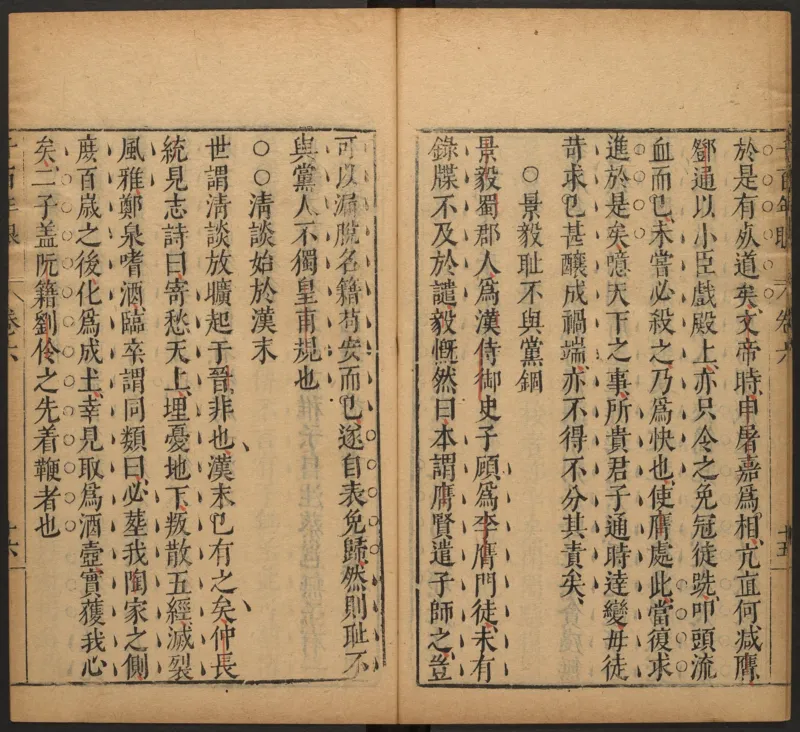 於是有从道矣文帝時申屠嘉爲相亢直何减膺
鄧通以小臣戲殿上亦只令之免冠徒跣叩頭流
血而已未嘗必殺之乃爲快也使膺處此當復求
進於是矣噫天下之事所貴君子通時達變毋徒
苛求已甚釀成禍端亦不得不分其責矣
○景毅耻不與黨錮
景毅蜀郡人爲漢侍御史子顧爲李膺門徒未有
錄牒不及於譴毅慨然曰本謂膺賢遣子師之豈
卷六
十五
可以漏脫名籍苟安而已遂自表免歸然則耻不
與黨人不獨皇甫規也
○○清談始於漢末
世謂清談放曠起于晉非也漢末已有之矣仲長
統見志詩曰寄愁天上埋憂地下叛散五經滅裂
風雅鄭泉嗜酒臨卒謂同類曰必塟我陶家之側
庶百歲之後化爲成土幸見取爲酒壺實獲我心
矣二子盖阮籍劉伶之先着鞭者也
卷六
十六